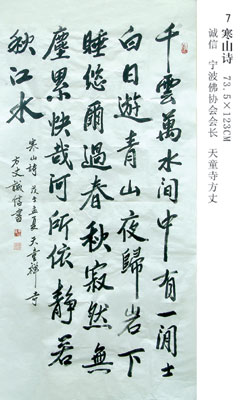 千雲萬水间中有一闲士
白日遊青山夜歸岩下
睡悠爾過春秋寂然無
塵累快哉何所依静若
秋江水
寒山詩 戊子孟夏 天童禅寺
方丈誠信書
7 寒山诗
73.5×123CM
诚信 宁波佛协会会长 天童寺方丈